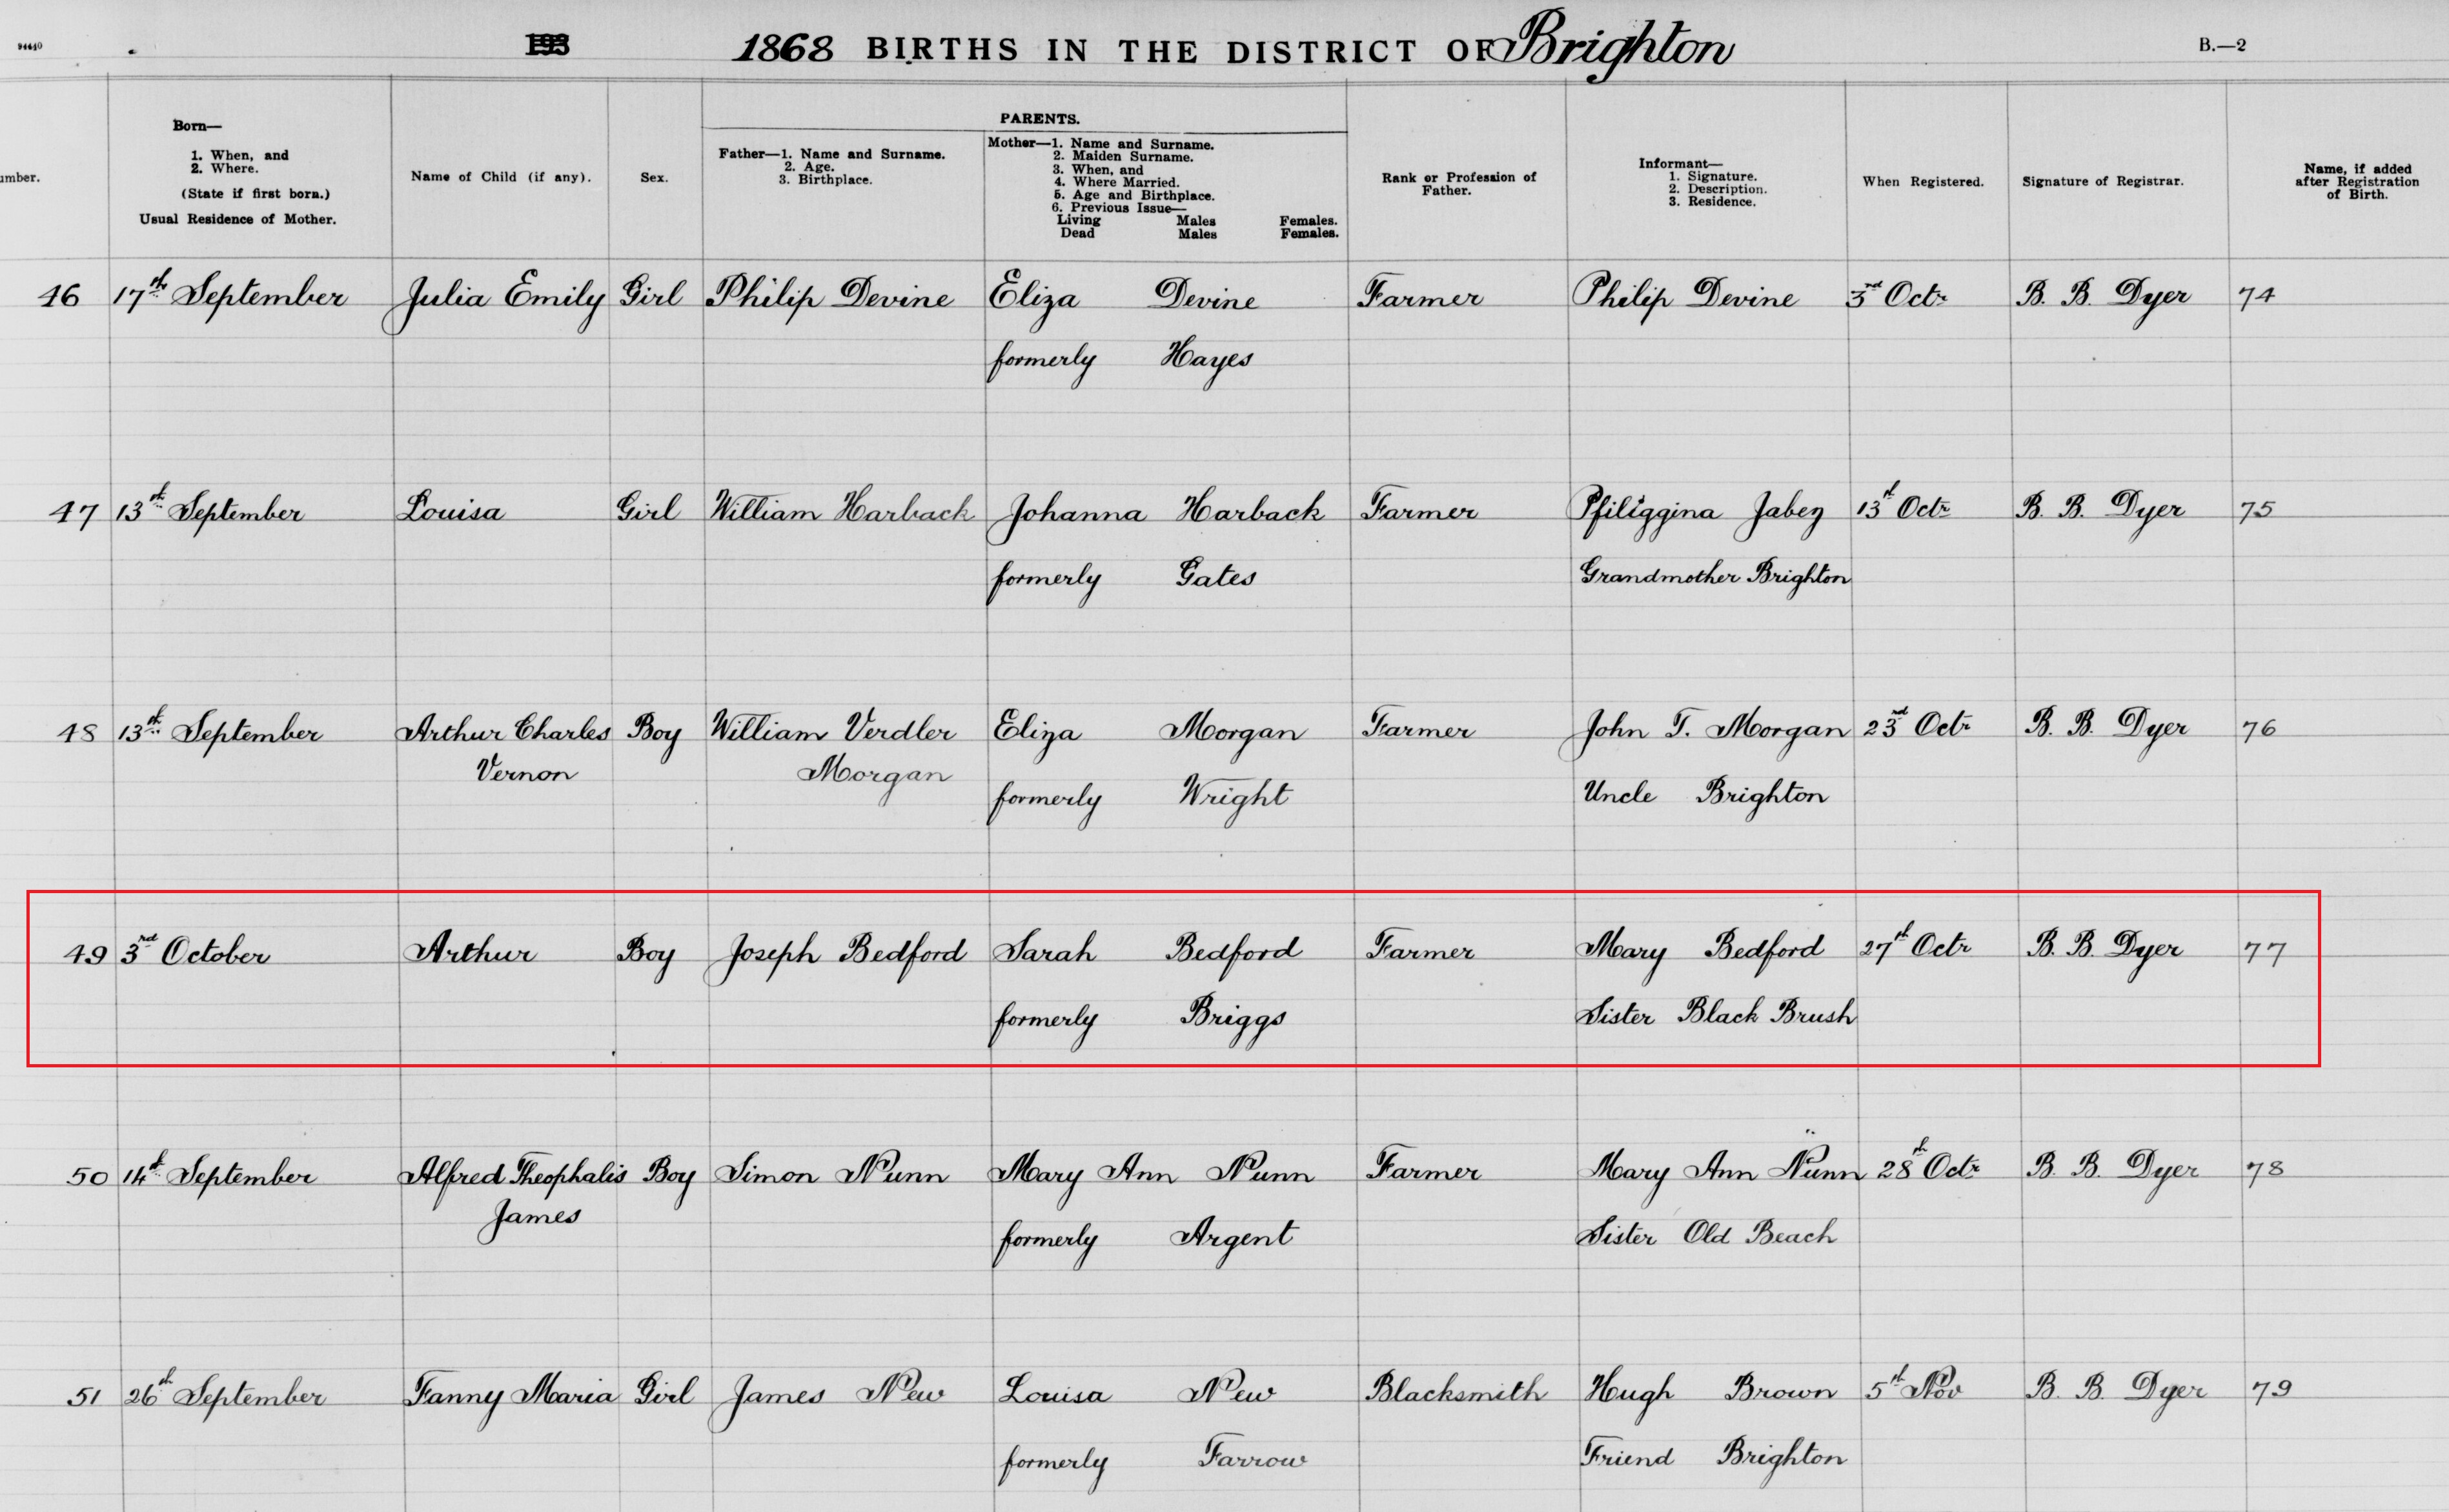 94440 193 1868 BIRTHS IN THE DISTRICT OF Brighton B.—2
umber.
Born—
1. When, and
2. Where.
(State if first born.)
Usual Residence of Mother.
Name of Child (if any).
Sex.
PARENTS.
Father—1. Name and Surname.
2. Age.
3. Birthplace.
Mother—1. Name and Surname.
2. Maiden Surname.
3. When, and
4. Where Married.
5. Age and Birthplace.
6. Previous Issue—
Living Males Females.
Dead Males Females.
Rank or Profession of
Father.
Informant—
1. Signature.
2. Description.
3. Residence.
When Registered.
Signature of Registrar.
Name, if added
after Registration
of Birth.
46 17th September Julia Emily Girl Philip Devine Eliza Devine Farmer Philip Devine 3rd Octr B. B. Dyer 74
formerly Hayes
47 13th September Louisa Girl William Harback Johanna Harback Farmer Pfiliggina Jabez 13th Octr B. B. Dyer 75
formerly Gates Grandmother Brighton
48 13th September Arthur Charles Boy William Verdler Eliza Morgan Farmer John T. Morgan 23rd Octr B. B. Dyer 76
Vernon Morgan
formerly Wright Uncle Brighton
49 3rd October Arthur Boy Joseph Bedford Sarah Bedford Farmer Mary Bedford 27th Octr B. B. Dyer 77
formerly Briggs Sister Black Brush
50 14th September Alfred Theophalis Boy Simon Nunn Mary Ann Nunn Farmer Mary Ann Nunn 28th Octr B. B. Dyer 78
James
formerly Argent Sister Old Beach
51 26th September Fanny Maria Girl James New Louisa New Blacksmith Hugh Brown 5th Nov B. B. Dyer 79
formerly Farrow Friend Brighton